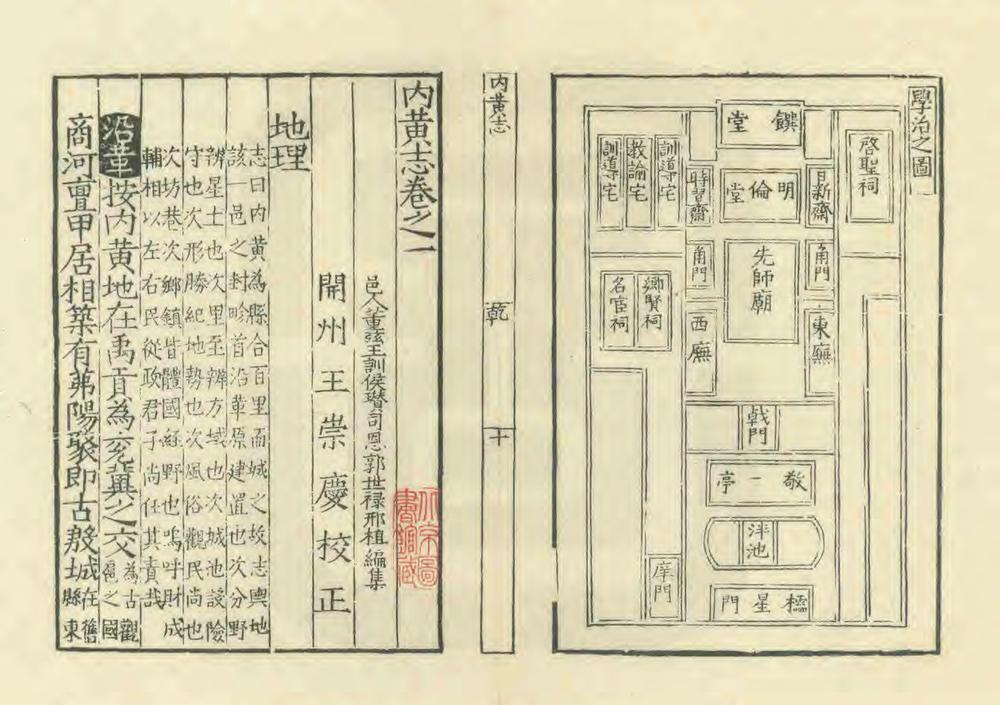 學治之圖
啓聖祠
饌堂
明倫堂
日新齋
時習齋
訓導宅
教諭宅
訓導宅
角門
角門
先師廟
東廡
西廡
鄉賢祠
名宦祠
戟門
敬一亭
泮池
櫺星門
庠門
內黃志
乾
十
內黃志卷之一
邑人董弦王訓侯瓚司恩郭世祿邢植編集
開州王崇慶校正
北京圖書館藏
地理
志曰內黃為縣合百里而城之故志輿地
該一邑之封畛首沿革原建置也次分野
辨星土也次里至辨方域也次城池設險
守也次形勝紀地勢也次風俗觀民尚也
次坊巷次鄉鎮皆體國經野也嗚呼財成
輔相以左右民從政君子尚任其責哉
沿革按內黃地在禹貢為兗冀之交為古觀扈之國
商河亶甲居相築有茀陽聚即古殷城在舊縣東